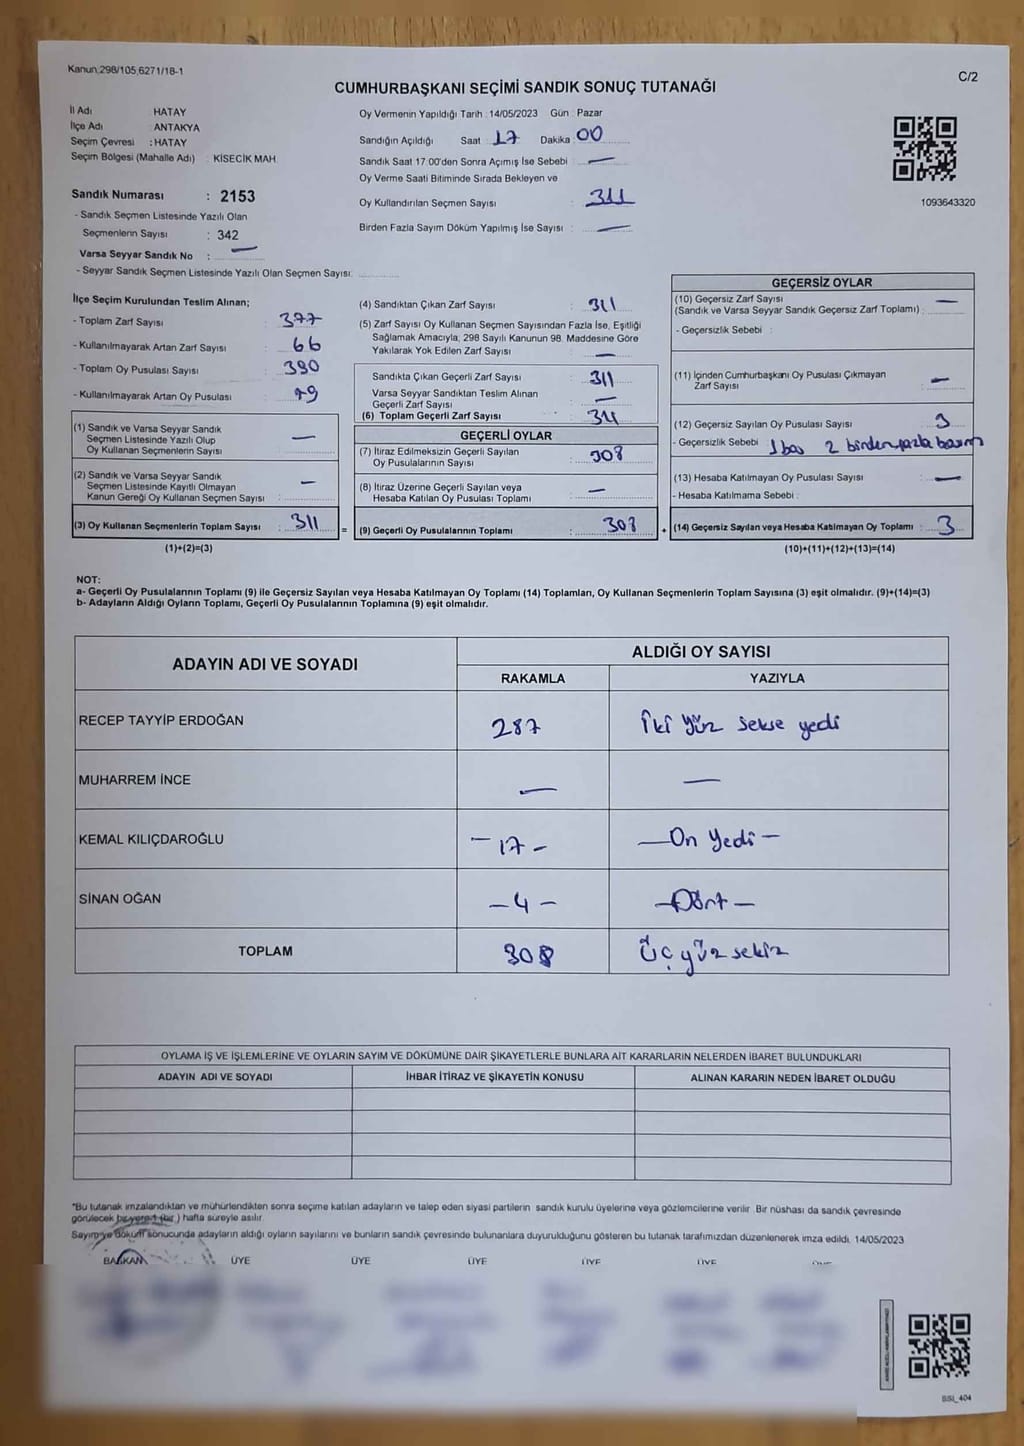 Kanun;298/105;6271/18-1
C/2
CUMHURBAŞKANI SEÇİMİ SANDIK SONUÇ TUTANAĞI
İl Adı : HATAY
İlçe Adı : ANTAKYA
Seçim Çevresi : HATAY
Seçim Bölgesi (Mahalle Adı) : KİSECİK MAH.
Sandık Numarası : 2153
- Sandık Seçmen Listesinde Yazılı Olan
Seçmenlerin Sayısı : 342
Varsa Seyyar Sandık No : —
- Seyyar Sandık Seçmen Listesinde Yazılı Olan Seçmen Sayısı:
Oy Vermenin Yapıldığı Tarih : 14/05/2023 Gün : Pazar
Sandığın Açıldığı Saat : 17 Dakika : 00
Sandık Saat 17:00'den Sonra Açımış İse Sebebi : —
Oy Verme Saati Bitiminde Sırada Bekleyen ve
Oy Kullandırılan Seçmen Sayısı : 311
Birden Fazla Sayım Döküm Yapılmış İse Sayısı : —
1093643320
İlçe Seçim Kurulundan Teslim Alınan;
- Toplam Zarf Sayısı : 377
- Kullanılmayarak Artan Zarf Sayısı : 66
- Toplam Oy Pusulası Sayısı : 390
- Kullanılmayarak Artan Oy Pusulası : 79
(1) Sandık ve Varsa Seyyar Sandık
Seçmen Listesinde Yazılı Olup
Oy Kullanan Seçmenlerin Sayısı : —
(2) Sandık ve Varsa Seyyar Sandık
Seçmen Listesinde Kayıtlı Olmayan
Kanun Gereği Oy Kullanan Seçmen Sayısı : —
(3) Oy Kullanan Seçmenlerin Toplam Sayısı : 311
(1)+(2)=(3)
(4) Sandıktan Çıkan Zarf Sayısı : 311
(5) Zarf Sayısı Oy Kullanan Seçmen Sayısından Fazla İse, Eşitliği
Sağlamak Amacıyla, 298 Sayılı Kanunun 98. Maddesine Göre
Yakılarak Yok Edilen Zarf Sayısı : —
Sandıkta Çıkan Geçerli Zarf Sayısı : 311
Varsa Seyyar Sandıktan Teslim Alınan
Geçerli Zarf Sayısı : —
(6) Toplam Geçerli Zarf Sayısı : 311
GEÇERLİ OYLAR
(7) İtiraz Edilmeksizin Geçerli Sayılan
Oy Pusulalarının Sayısı : 308
(8) İtiraz Üzerine Geçerli Sayılan veya
Hesaba Katılan Oy Pusulası Toplamı : —
= (9) Geçerli Oy Pusulalarının Toplamı : 308
GEÇERSİZ OYLAR
(10) Geçersiz Zarf Sayısı
(Sandık ve Varsa Seyyar Sandık Geçersiz Zarf Toplamı) : —
- Geçersizlik Sebebi :
(11) İçinden Cumhurbaşkanı Oy Pusulası Çıkmayan
Zarf Sayısı : —
(12) Geçersiz Sayılan Oy Pusulası Sayısı : 3
- Geçersizlik Sebebi : 1 boş 2 birden fazla basım
(13) Hesaba Katılmayan Oy Pusulası Sayısı : —
- Hesaba Katılmama Sebebi :
+ (14) Geçersiz Sayılan veya Hesaba Katılmayan Oy Toplamı : 3
(10)+(11)+(12)+(13)=(14)
NOT:
a- Geçerli Oy Pusulalarının Toplamı (9) ile Geçersiz Sayılan veya Hesaba Katılmayan Oy Toplamı (14) Toplamları, Oy Kullanan Seçmenlerin Toplam Sayısına (3) eşit olmalıdır. (9)+(14)=(3)
b- Adayların Aldığı Oyların Toplamı, Geçerli Oy Pusulalarının Toplamına (9) eşit olmalıdır.
ADAYIN ADI VE SOYADI
ALDIĞI OY SAYISI
RAKAMLA YAZIYLA
RECEP TAYYİP ERDOĞAN 287 İki Yüz sekse yedi
MUHARREM İNCE — —
KEMAL KILIÇDAROĞLU -17- —On Yedi—
SİNAN OĞAN -4- —Dört—
TOPLAM 308 Üç yüz sekiz
OYLAMA İŞ VE İŞLEMLERİNE VE OYLARIN SAYIM VE DÖKÜMÜNE DAİR ŞİKAYETLERLE BUNLARA AİT KARARLARIN NELERDEN İBARET BULUNDUKLARI
ADAYIN ADI VE SOYADI İHBAR İTİRAZ VE ŞİKAYETİN KONUSU ALINAN KARARIN NEDEN İBARET OLDUĞU
*Bu tutanak imzalandıktan ve mühürlendikten sonra seçime katılan adayların ve talep eden siyasi partilerin sandık kurulu üyelerine veya gözlemcilerine verilir. Bir nüshası da sandık çevresinde
görülecek bir yere 1 (bir) hafta süreyle asılır.
Sayım ve döküm sonucunda adayların aldığı oyların sayılarını ve bunların sandık çevresinde bulunanlara duyurulduğunu gösteren bu tutanak tarafımızdan düzenlenerek imza edildi. 14/05/2023
BAŞKAN ÜYE ÜYE ÜYE ÜYE ÜYE
BSI_404